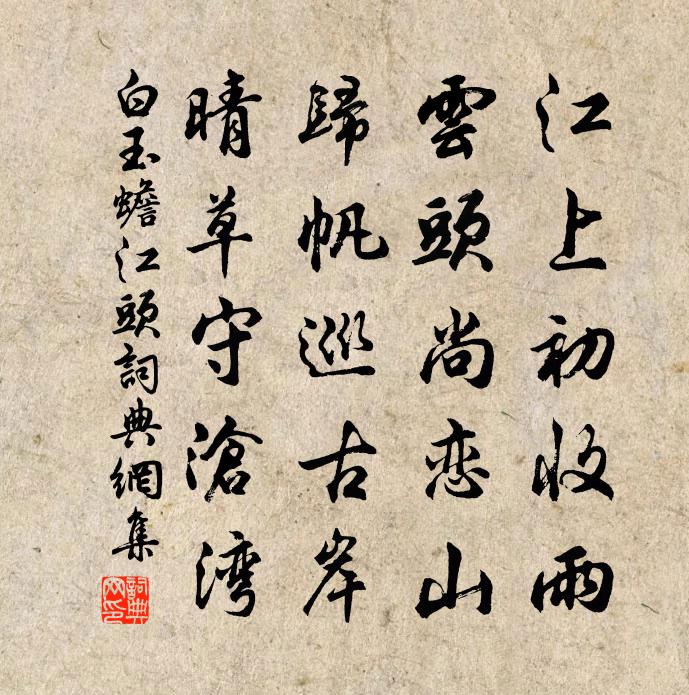 江上初收雨
雲頭尚恋山
歸帆巡古岸
晴草守滄湾
白玉蟾江頭詞典網集
詞典網印